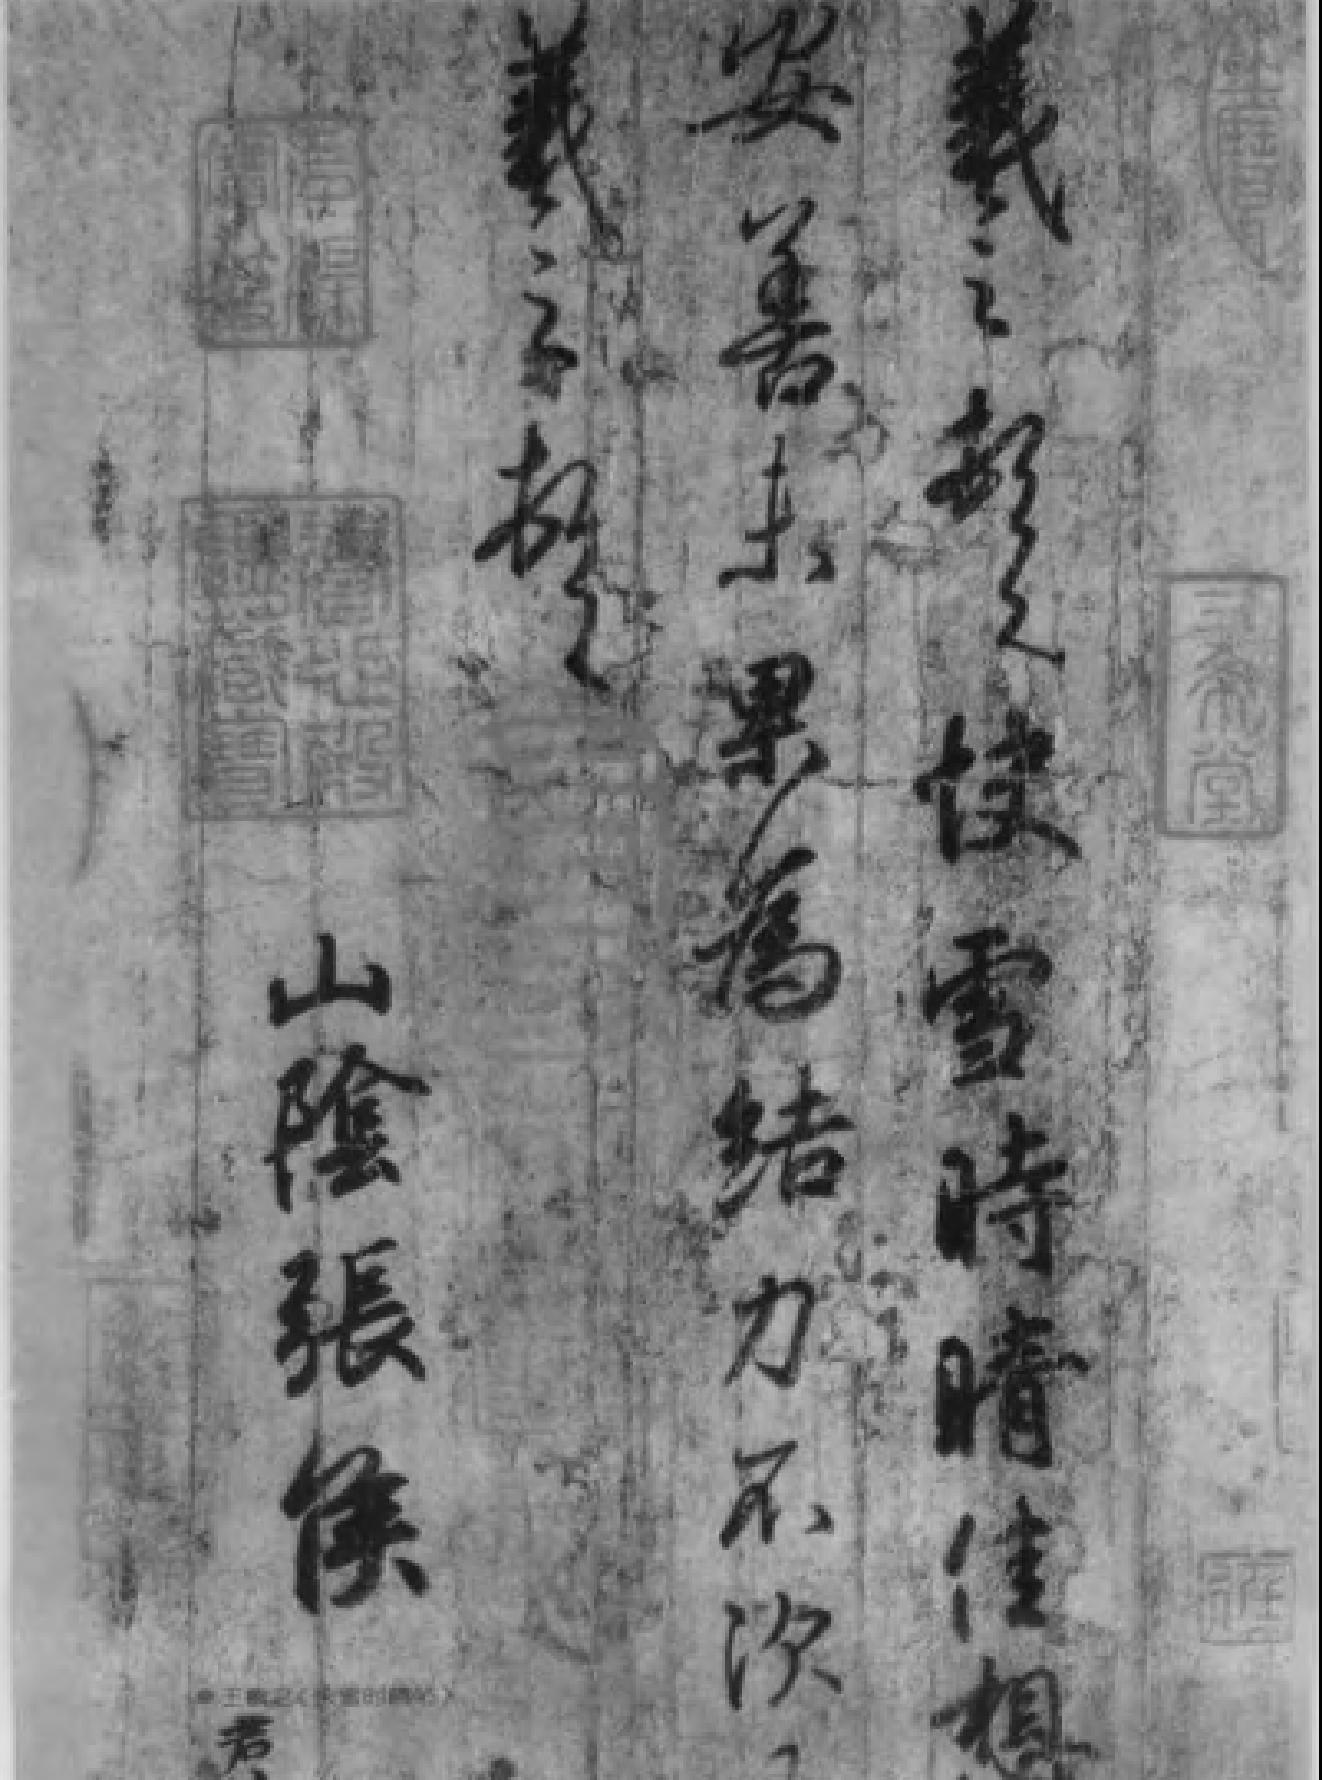 羲之頓首快雪時晴佳想
安善未果為結力不次
羲之頓首
山陰張侯
君
三希堂
王羲之《快雪时晴帖》